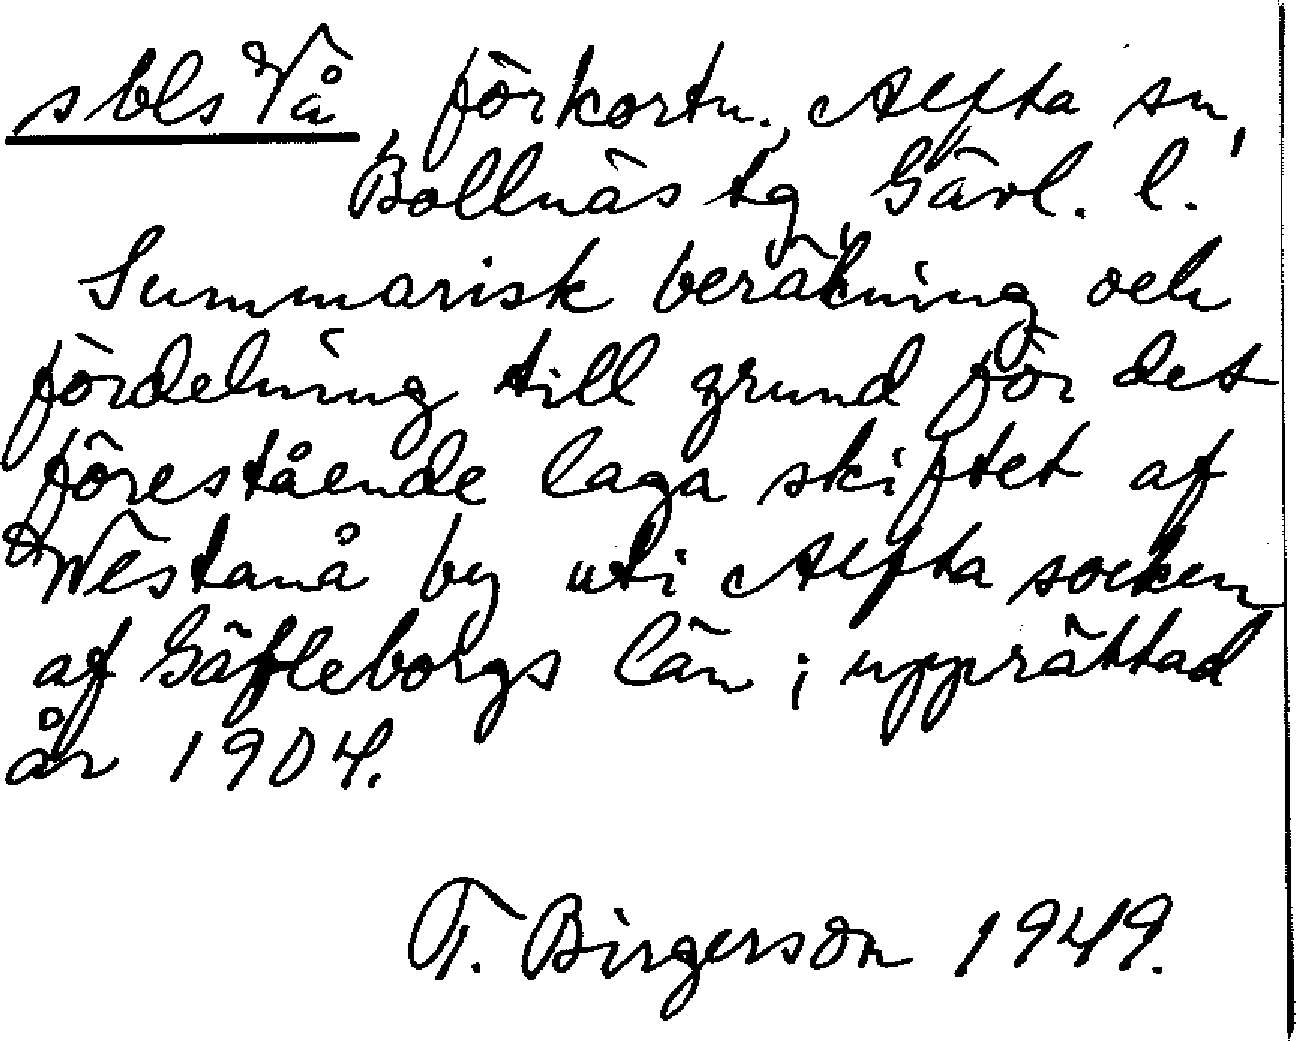 sblsVå, förkortn., Alfta sn,
Bollnäs tg, Gävl. l.
Summarisk beräkning och
fördelning till grund för det
förestående laga skiftet af
Westanå by uti Alfta socken
af Gäfleborgs län; upprättad
år 1904.
T. Birgerson 1949.